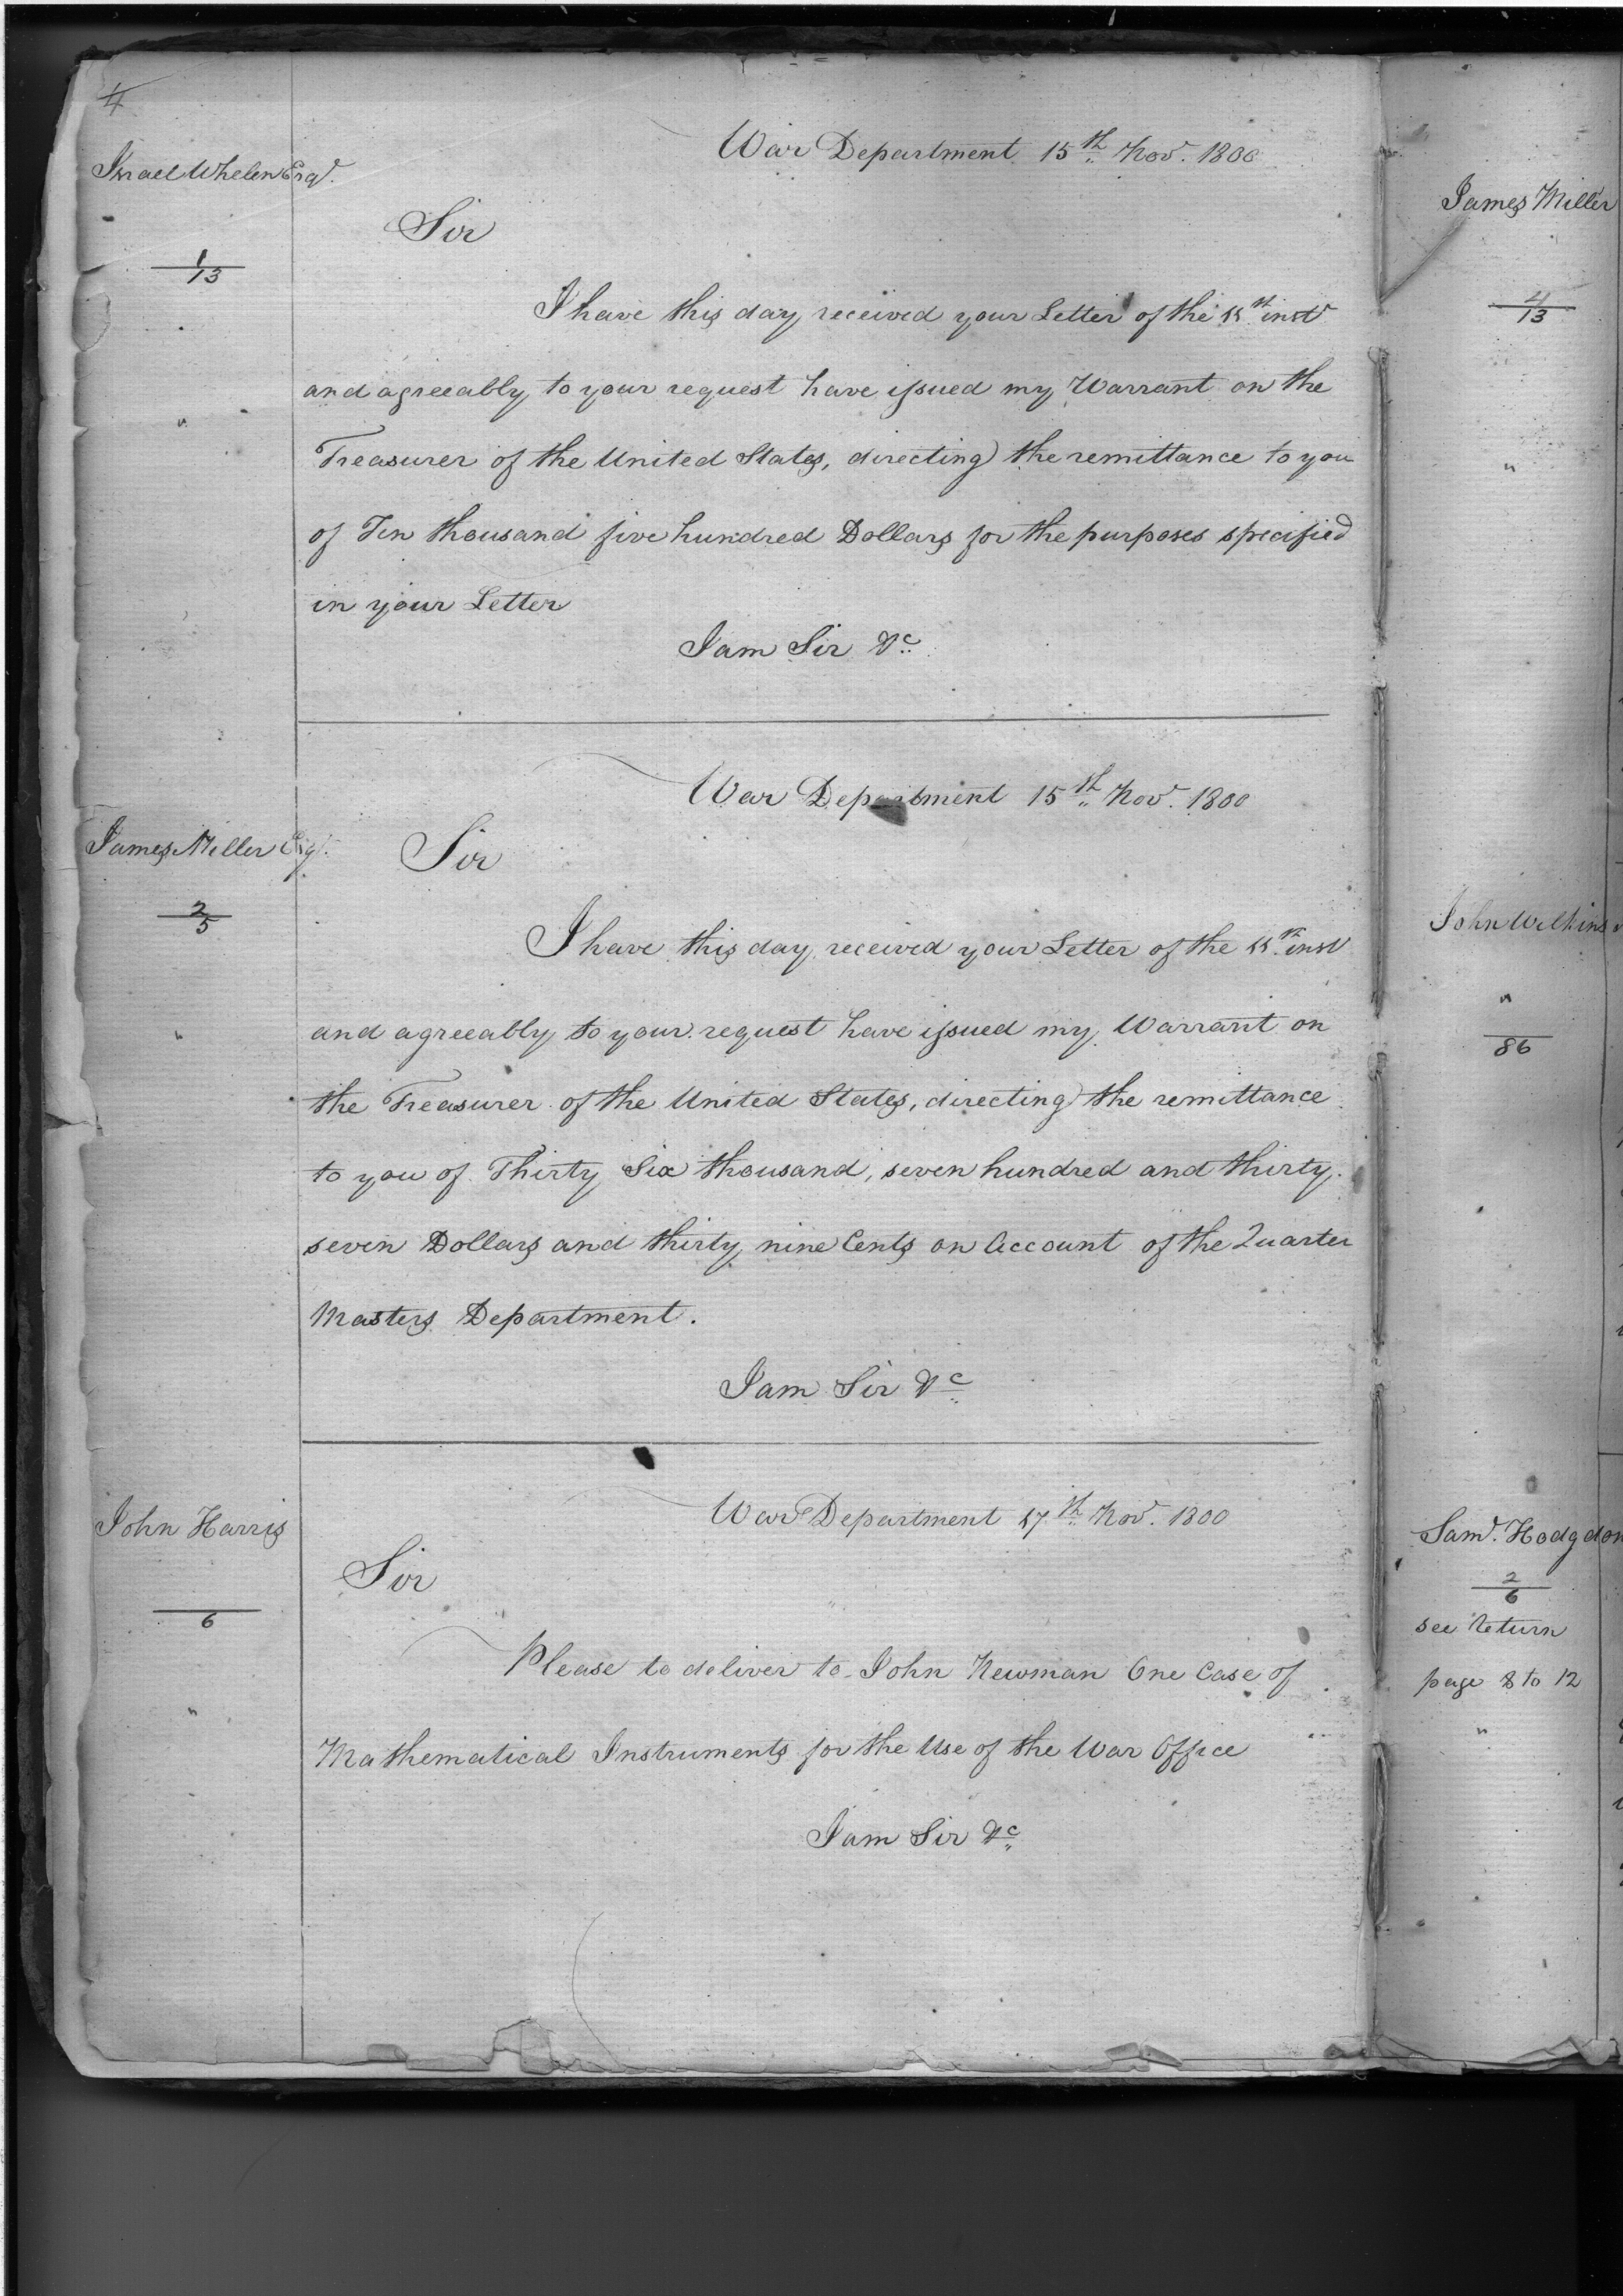 4
Israel Whelen Esqr.
1
13
"
War Department 15th Nov. 1800
Sir
I have this day received your Letter of the 11th inst
and agreeably to your request have issued my Warrant on the
Treasurer of the United States, directing the remittance to you
of Ten thousand five hundred Dollars for the purposes specified
in your Letter
I am Sir &c
James Miller Esqr.
2
5
"
War Department 15th Nov. 1800
Sir
I have this day received your Letter of the 11th inst
and agreeably to your request have issued my Warrant on
the Treasurer of the United States, directing the remittance
to you of Thirty Six thousand, seven hundred and thirty
seven Dollars and thirty nine Cents on Account of the Quarter
Masters Department.
I am Sir &c
John Harris
6
"
War Department 17th Nov. 1800
Sir
Please to deliver to John Newman One Case of
Mathematical Instruments for the Use of the War Office
I am Sir &c
James Miller
4
13
"
John Wilkins
"
86
Saml. Hodgdon
2
6
see return
page 8 to 12
"